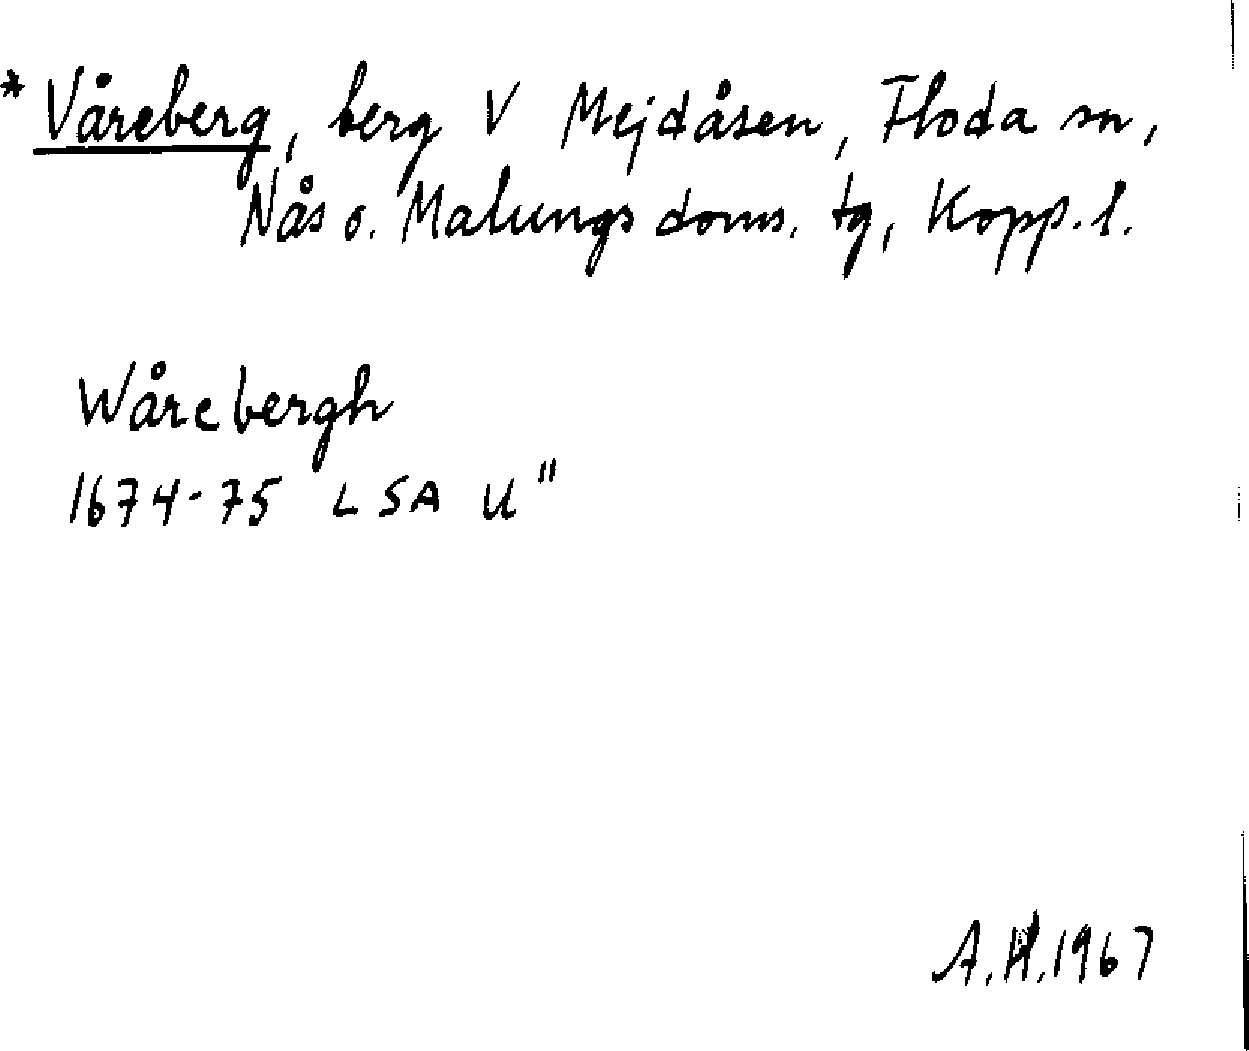 * Våreberg, berg V Mejdåsen, Floda sn,
Nås o. Malungs doms. tg, Kopp. l.
Wårebergh
1674-75 LSA U"
A.H. 1967